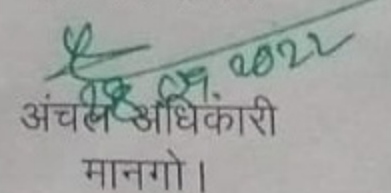 09.2022
अंचल अधिकारी
मानगो।